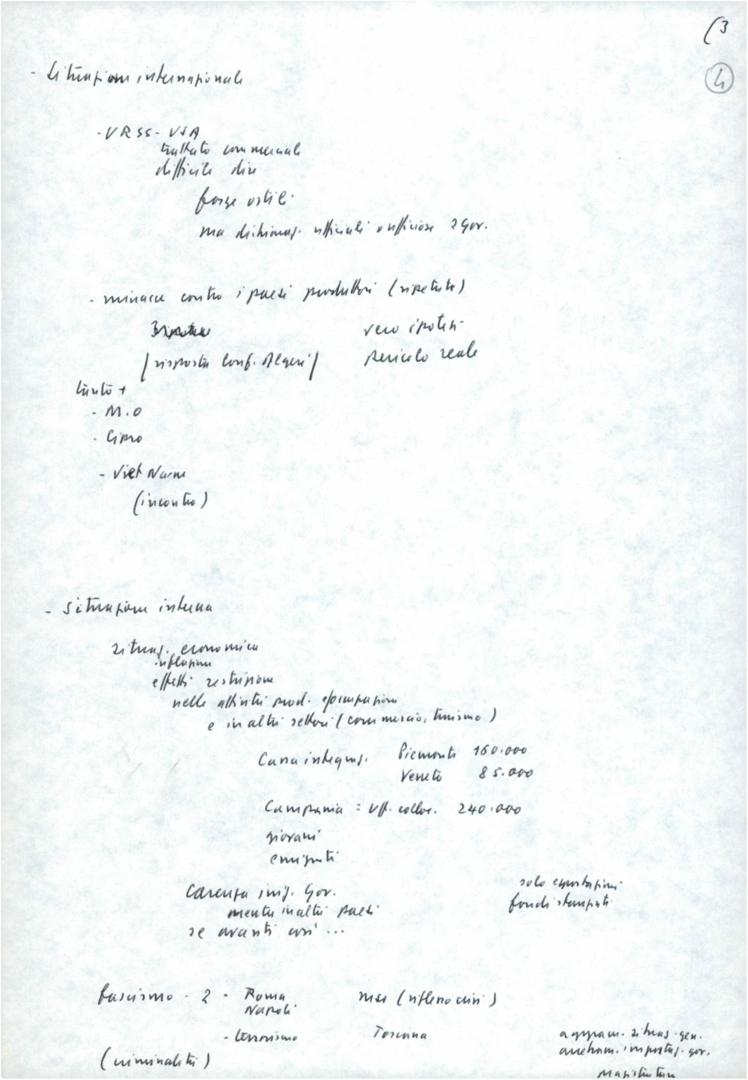 (3
4
- Situazione internazionale
- URSS - USA
trattato commerciale
difficile dire
forze ostili
ma dichiaraz. ufficiali o ufficiose 2 gov.
- minacce contro i paesi produttori (ripetute)
vero ipotesi
(risposta conf. Algeri) pericolo reale
tanto +
- M.O
- Cipro
- Viet Nam
(incontro)
- Situazione interna
situaz. economica
inflazione
effetti restrizione
nelle attività prod. e occupazione
e in altri settori (commercio, turismo)
Cassa integraz. Piemonte 160.000
Veneto 85.000
Campania = Uff. colloc. 240.000
giovani
emigrati
carenza iniz. gov. solo esportazioni
mentre in altri paesi fondi stampati
se avanti così ...
fascismo - 2 - Roma msi
Napoli
- terrorismo Toscana aggrav. situaz. gen.
(criminalità) impostaz. gov.
Magistratura